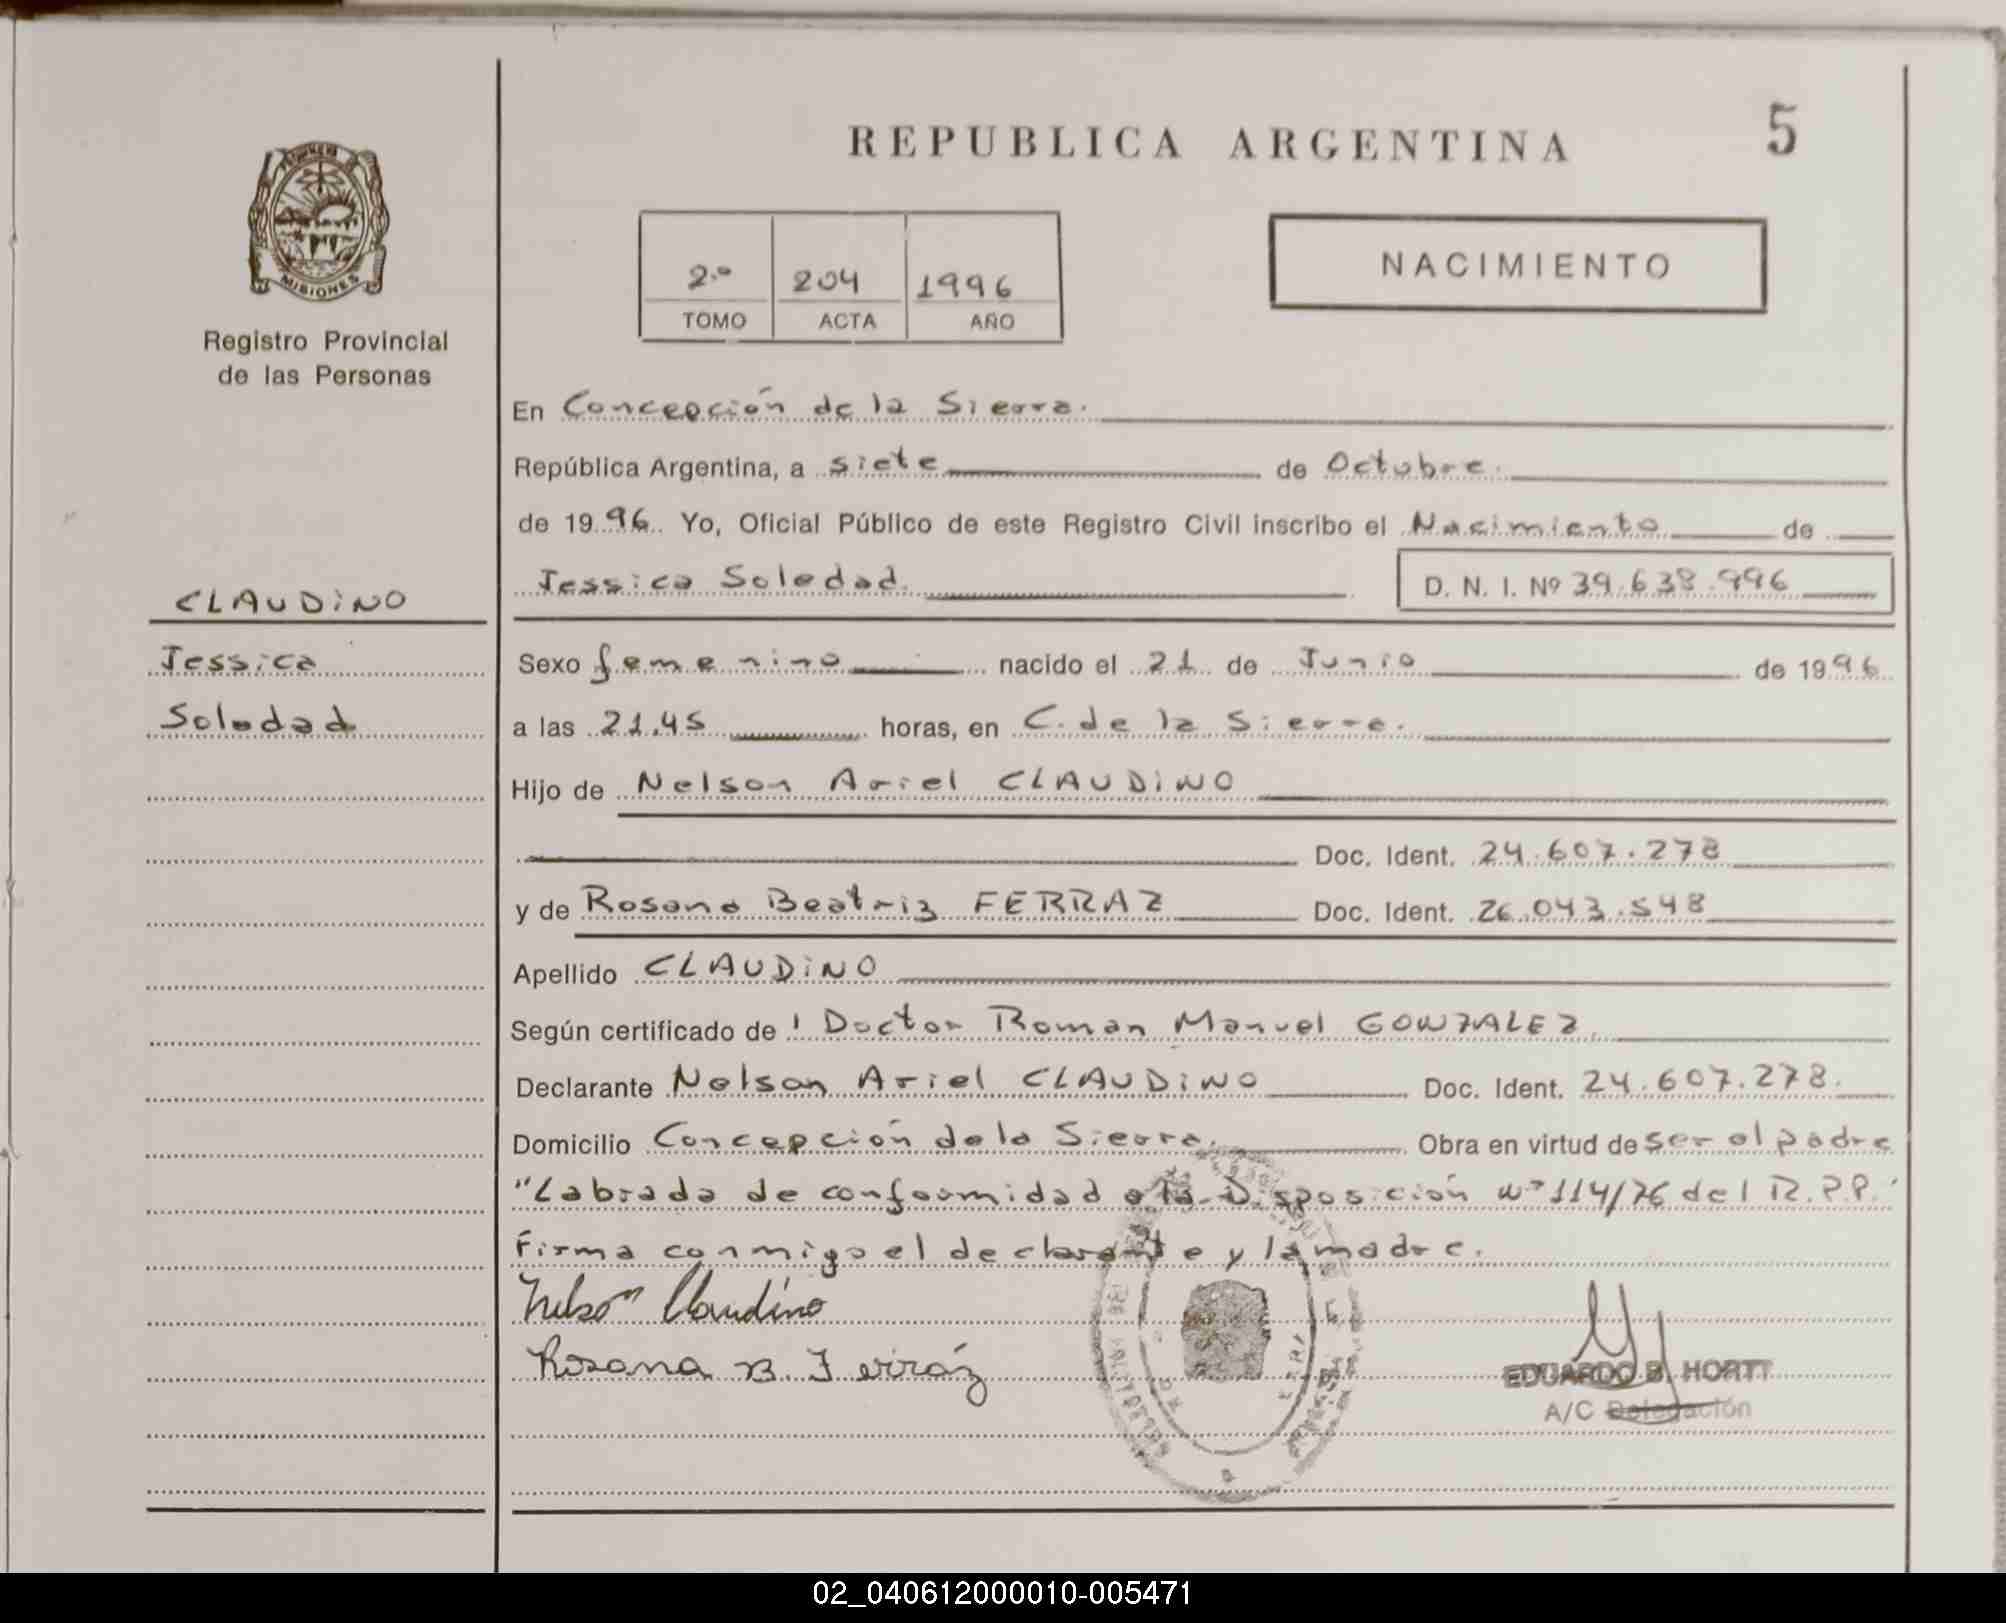 REPUBLICA ARGENTINA
5
MISIONES
Registro Provincial
de las Personas
2.º 204 1996
TOMO ACTA AÑO
NACIMIENTO
En Concepción de la Sierra.
República Argentina, a siete de Octubre.
de 1996. Yo, Oficial Público de este Registro Civil inscribo el Nacimiento de
Jessica Soledad. D. N. I. Nº 39.638.996
CLAUDINO
Jessica
Soledad
Sexo femenino nacido el 21 de Junio de 1996
a las 21.45 horas, en C. de la Sierra.
Hijo de Nelson Ariel CLAUDINO
Doc. Ident. 24.607.278
y de Rosana Beatriz FERRAZ Doc. Ident. 26.043.548
Apellido CLAUDINO
Según certificado de l Doctor Roman Manuel GONZALEZ.
Declarante Nelson Ariel CLAUDINO Doc. Ident. 24.607.278.
Domicilio Concepción de la Sierra. Obra en virtud de ser el padre
"Labrada de conformidad a la Disposición Nº 114/76 del R.P.P."
Firma conmigo el declarante y la madre.
Nelson Claudino
Rosana B. Ferráz
EDUARDO B. HORTT
A/C Delegación
02_040612000010-005471